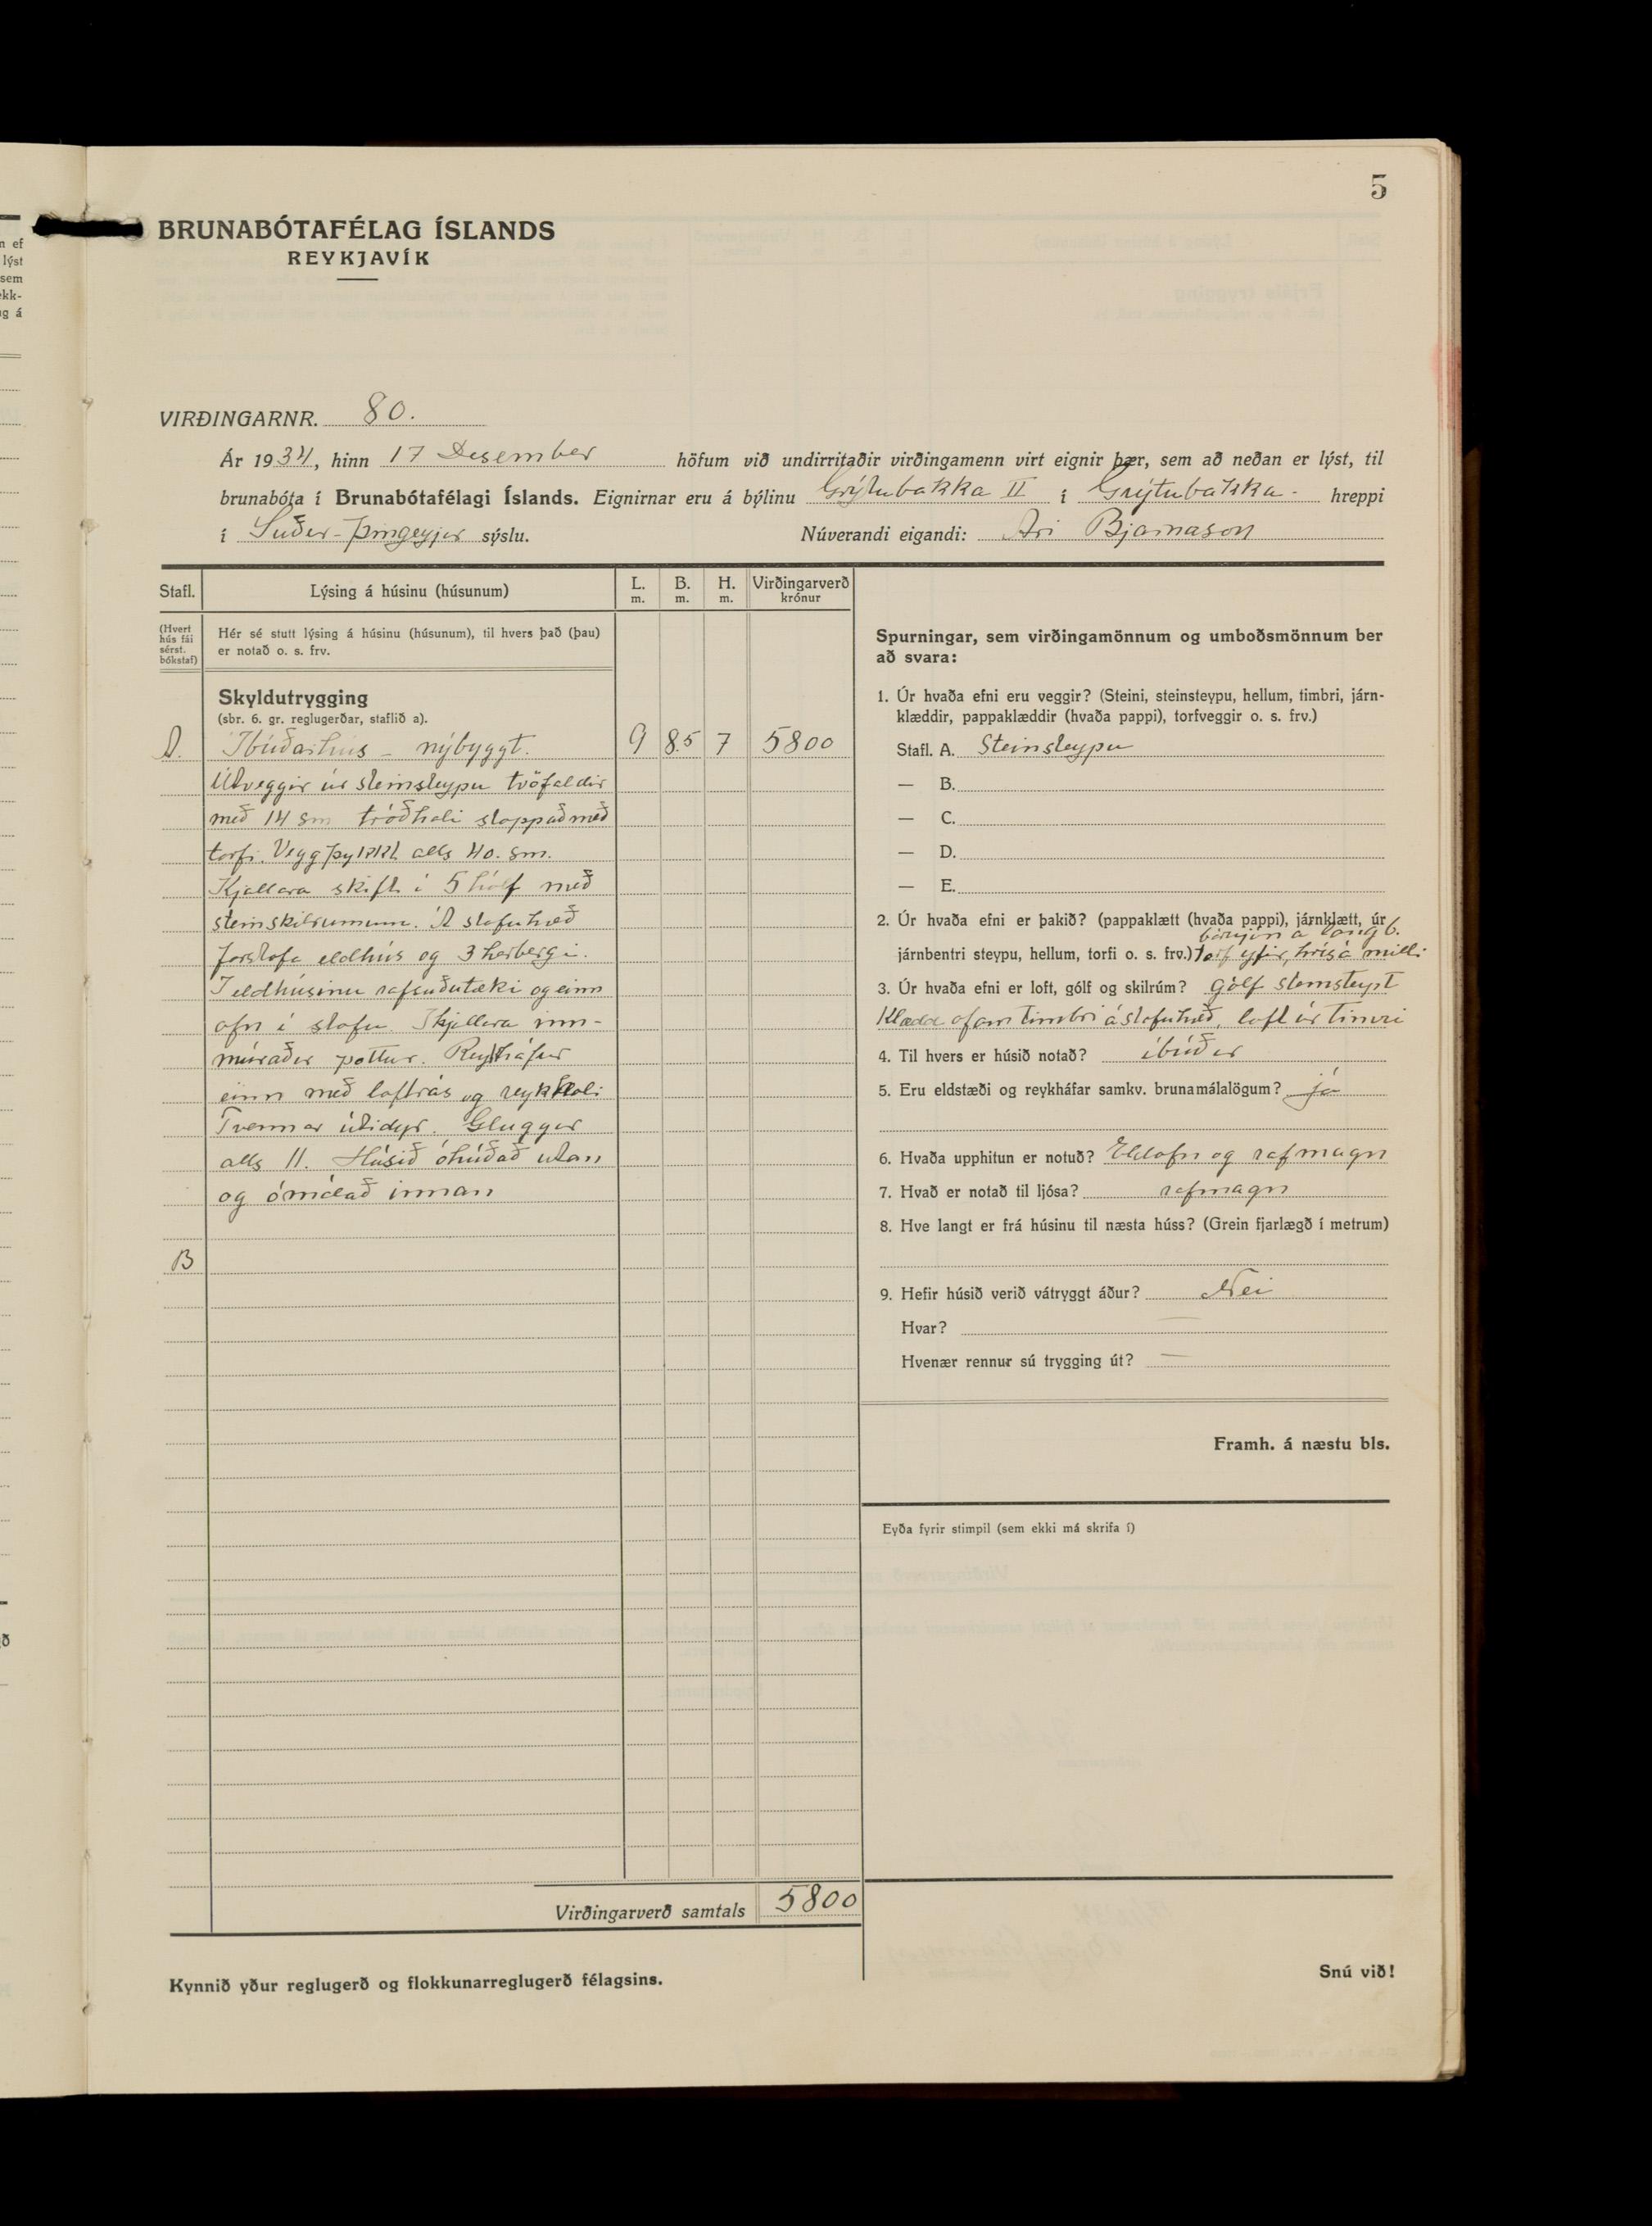 5
BRUNABÓTAFÉLAG ÍSLANDS
REYKJAVÍK
VIRÐINGARNR. 80.
Ár 1934, hinn 17 Desember höfum við undirritaðir virðingamenn virt eignir þær, sem að neðan er lýst, til
brunabóta í Brunabótafélagi Íslands. Eignirnar eru á býlinu Grýtubakka II í Grýtubakka- hreppi
í Suður-Þingeyjar sýslu. Núverandi eigandi: Ari Bjarnason
Stafl. Lýsing á húsinu (húsunum) L. m. B. m. H. m. Virðingarverð krónur
(Hvert hús fái sérst. bókstaf)
Hér sé stutt lýsing á húsinu (húsunum), til hvers það (þau)
er notað o. s. frv.
Skyldutrygging
(sbr. 6. gr. reglugerðar, staflið a).
A. Íbúðarhús - nýbyggt. 9 8.5 7 5800
Útveggir úr steinsteypu tvöfaldir
með 14 sm tróðholi stoppað með
torfi. Veggþykkt alls 40. sm.
Kjallara skift í 5 hólf með
steinskilrumum. Á stofuhæð
forstofa eldhús og 3 herbergi.
Í eldhúsinu rafsuðutæki og einn
ofn í stofu. Í kjallara inn-
múraður pottur. Reykháfur
einn með loftrás og reykholi
Tvennar útidyr. Gluggar
alls 11. Húsið óhúðað utan
og ómálað innan
B
Virðingarverð samtals 5800
Kynnið yður reglugerð og flokkunarreglugerð félagsins.
Spurningar, sem virðingamönnum og umboðsmönnum ber
að svara:
1. Úr hvaða efni eru veggir? (Steini, steinsteypu, hellum, timbri, járn-
klæddir, pappaklæddir (hvaða pappi), torfveggir o. s. frv.)
Stafl. A. Steinsteypu
— B.
— C.
— D.
— E.
2. Úr hvaða efni er þakið? (pappaklætt (hvaða pappi), járnklætt, úr
bárujárn á langb.
járnbentri steypu, hellum, torfi o. s. frv.) torf yfir, hrís á milli
3. Úr hvaða efni er loft, gólf og skilrúm? gólf steinsteypt
Klædd ofan timbri á stofuhæð, loft úr timbri
4. Til hvers er húsið notað? íbúðar
5. Eru eldstæði og reykháfar samkv. brunamálalögum? já
6. Hvaða upphitun er notuð? Eldofn og rafmagn
7. Hvað er notað til ljósa? rafmagn
8. Hve langt er frá húsinu til næsta húss? (Grein fjarlægð í metrum)
9. Hefir húsið verið vátryggt áður? Nei
Hvar? —
Hvenær rennur sú trygging út? —
Framh. á næstu bls.
Eyða fyrir stimpil (sem ekki má skrifa í)
Snú við!
n ef
lýst
sem
ekk-
g á